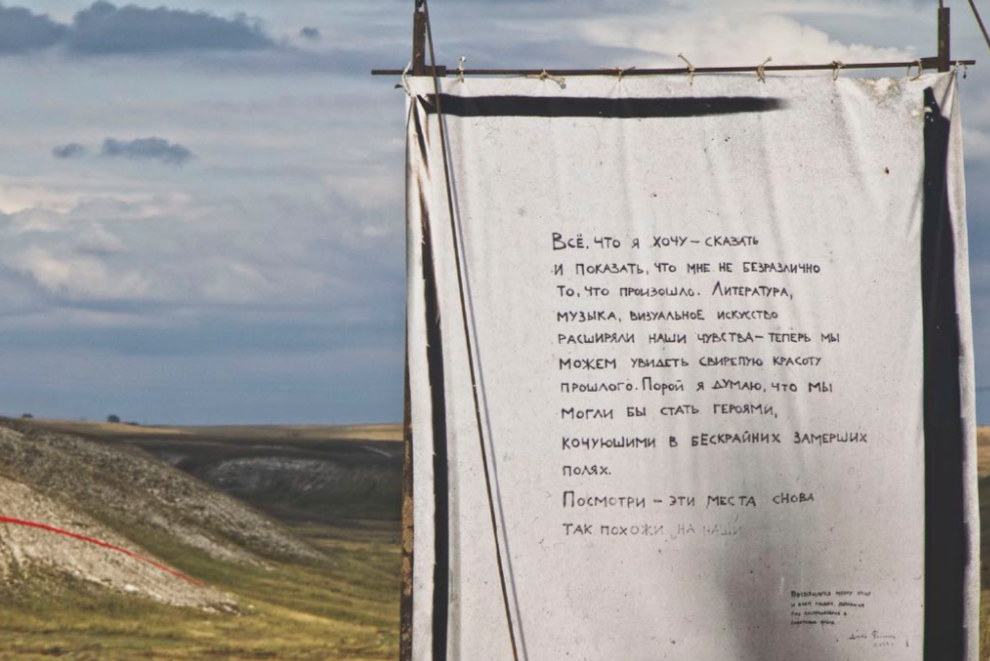 Всё, что я хочу – сказать
и показать, что мне не безразлично
то, что произошло. Литература,
музыка, визуальное искусство
расширяли наши чувства – теперь мы
можем увидеть свирепую красоту
прошлого. Порой я думаю, что мы
могли бы стать героями,
кочуюшими в бескрайних замерших
полях.
Посмотри – эти места снова
так похожи на наши